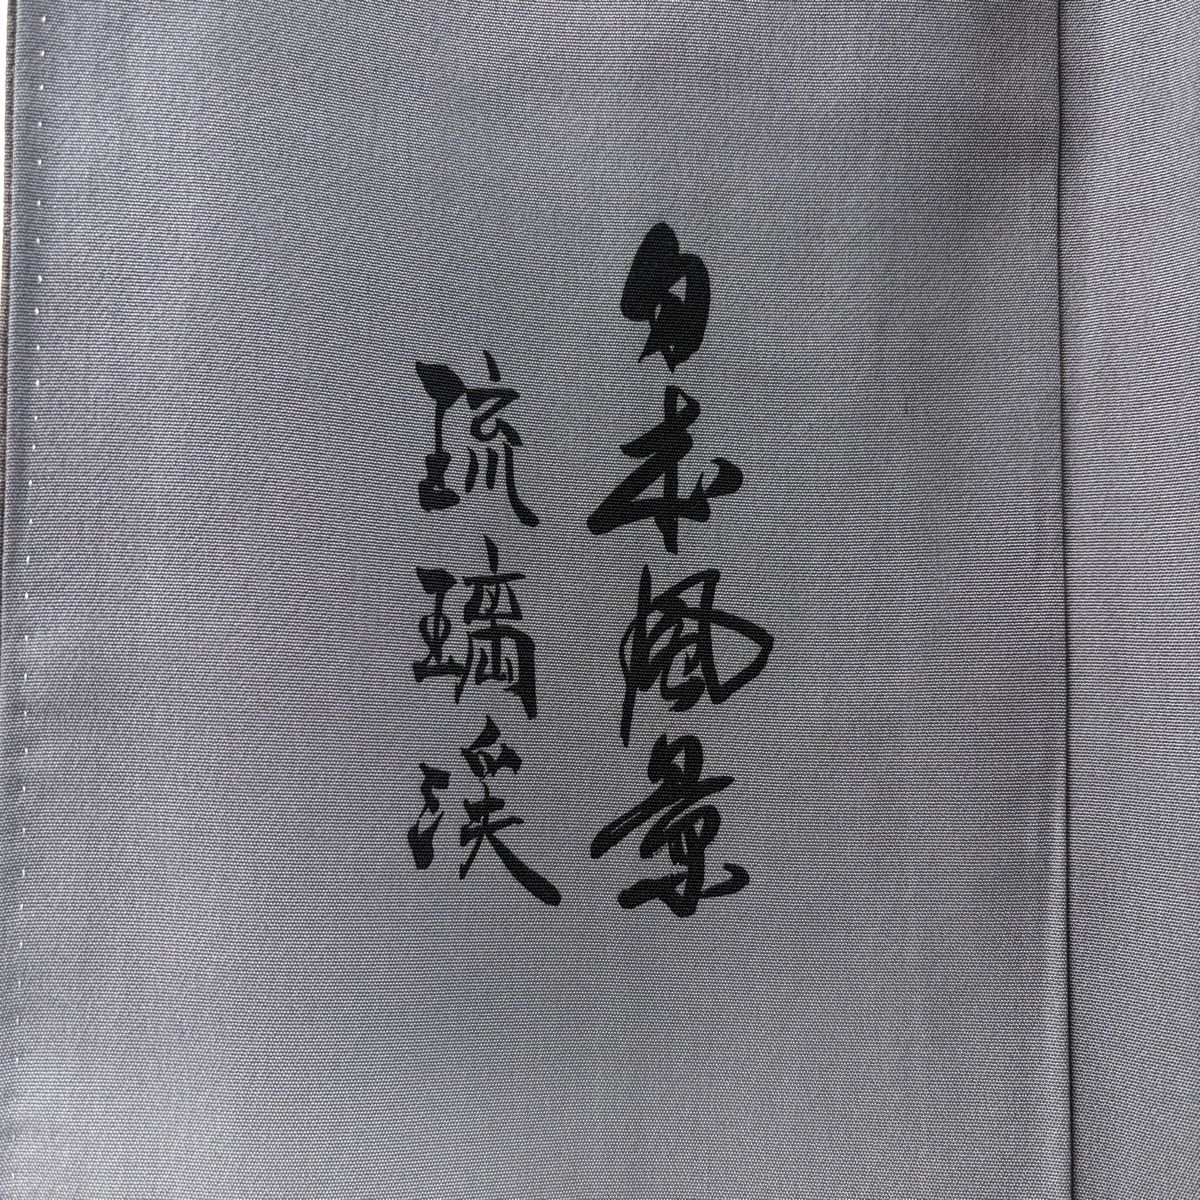 日本風景
琉璃渓